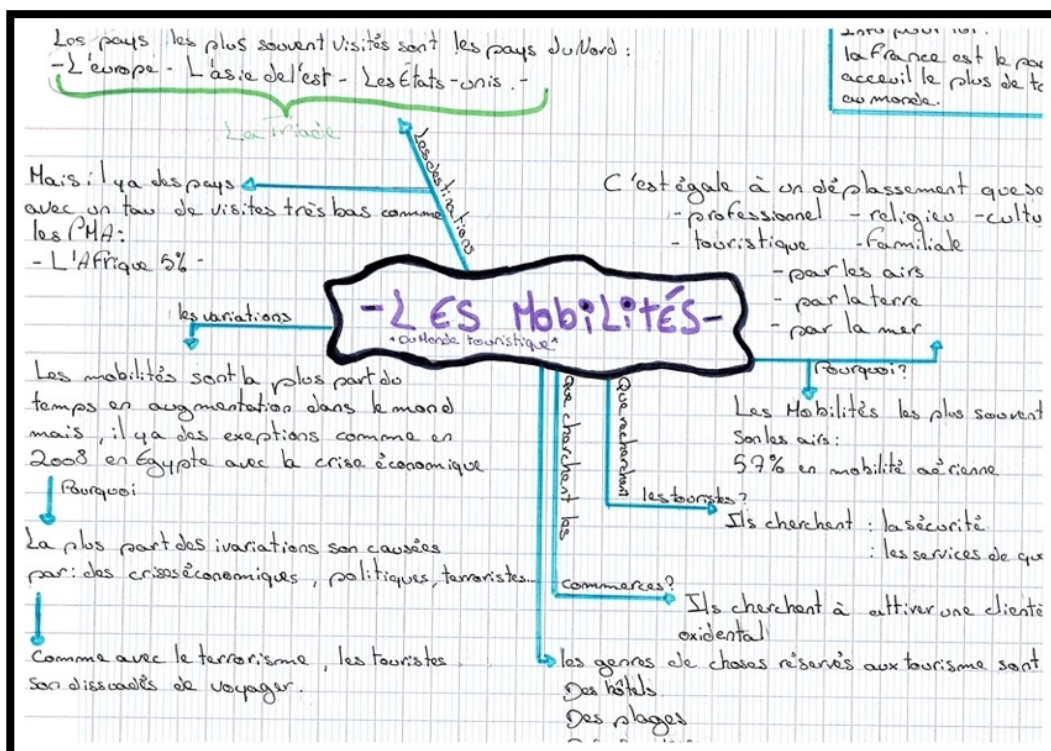 Les pays les plus souvent visités sont les pays du Nord :
-L'europe - L'asie de l'est - Les États-unis. -
La triade
Info pour toi :
la France est le
acceuil le plus de
au monde.
Les destinations
Mais il ya des pays
avec un tau de visites très bas comme
les PMA:
- L'Afrique 5% -
C'est égale à un déplassement que
- professionnel - religieu - cultu
- touristique - Familiale
- par les airs
- par la terre
- par la mer
-LES MobiLitÉS-
"Du Monde touristique"
les variations
Les mobilités sont la plus part du
temps en augmentation dans le mond
mais, il ya des exeptions comme en
2008 en Égypte avec la crise économique
Pourquoi
La plus part des ivariations son causées
par: des crises économiques, politiques, terroristes...
Comme avec le terrorisme, les touristes
son dissuadés de voyager.
Pourquoi?
Les Mobilités les plus souvent
son les airs:
57% en mobilité aérienne
Que recherchent
les touristes?
Ils cherchent : la sécurité
: les services de qu
Que charchent les
commerces?
Ils cherchent à attirer une clientè
oxidental
les genres de choses réservés aux tourisme sont
Des hôtels
Des plages